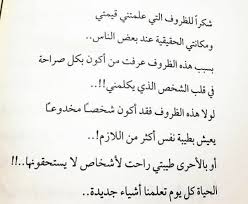 شكراً للظروف التي علمتني قيمتي
ومكانتي الحقيقية عند بعض الناس..
بسبب هذه الظروف عرفت من أكون بكل صراحة
في قلب الشخص الذي يكلمني!..
لولا هذه الظروف فقد أكون شخصاً مخدوعاً
يعيش بطيبة نفس أكثر من اللازم!..
أو بالأحرى طيبتي راحت لأشخاص لا يستحقونها..!!
الحياة كل يوم تعلمنا أشياء جديدة..